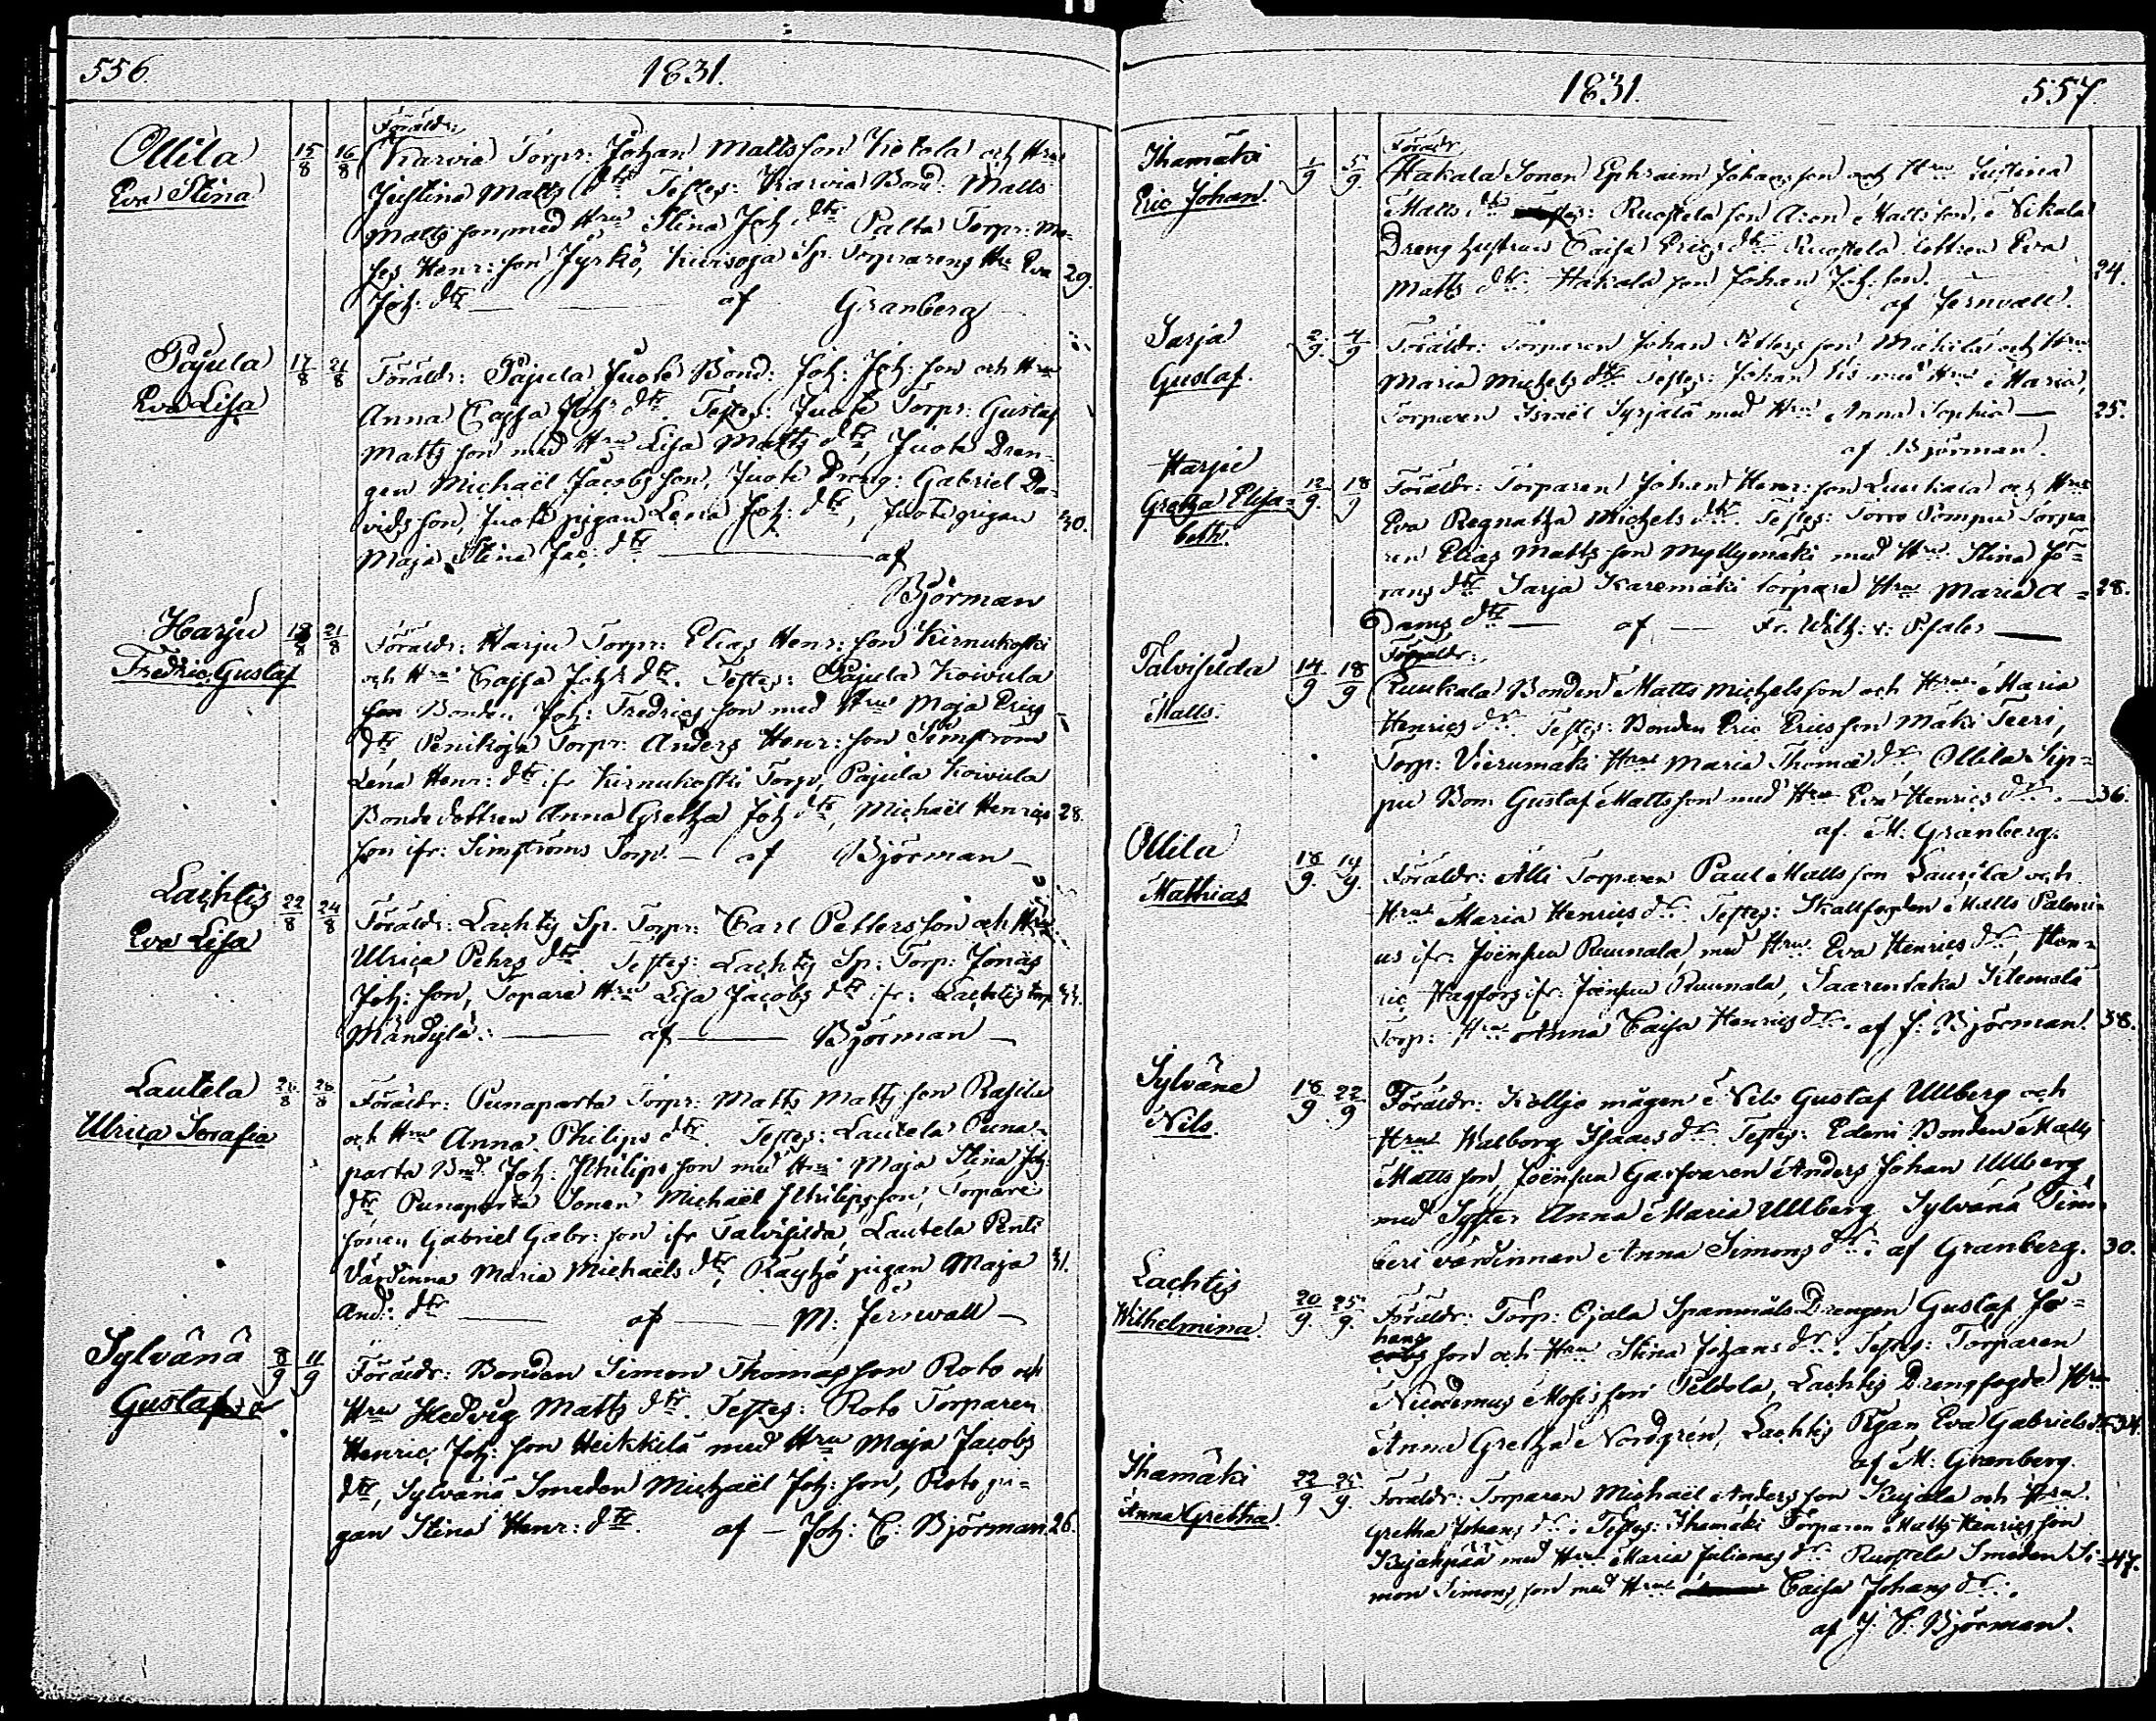 556.
1831.
Ollila
Eva Stina
15/8 16/8
Föräldr:
Karvia Torpr: Johan Mattsson Ketola och Hru
Justina Matts dtr Testes: Karvia Bond: Matts
Mattsson med Hru Stina Joh dtr Palta Torpr: Mo-
ses Henr: son Jyrkö, Sp. Eva
Joh: dtr — af Granberg
29.
Pajula
Eva Lisa
17/8 21/8
Föräldr: Pajula Juote Bond: Joh: Joh: son och Hru
Anna Cajsa Joh: dtr. Testes: Juote Torpr: Gustaf
Matts son med Hru Lisa Matts dtr, Juote Dren-
gen Michaël Jacobs son, Juote Dräng: Gabriel Da-
vids son, Juote pigan Lena Joh: dtr, Juote pigan
Maja Stina Jac: dtr — af
Björman
30.
Harju
Fredric Gustaf
21/8
Föräldr: Harju Torpr: Elias Henr: son Kirnukoski
och Hru Cajsa Joh: dtr. Testes: Pajula Koivula
Bonden Joh: Fredrics son med Hru Maja Erics
dtr, Penikoja Torpr: Anders Henr: son Simström
Lena Henr: dtr ifr Kirnukoski Torp, Pajula Koivula
Bonde dottren Anna Gretha Joh dtr, Michaël Henrics
son ifr: Simströms Torp. — af Björman —
28.
Lachtis
Eva Lisa
22/8 24/8
Föräldr: Lachtis Sp. Torpr: Carl Petters son och Hru
Ulrica Pehrs dtr. Testes: Lachtis Sp: Torp: Jonas
Joh: son, Torpare Hru Lisa Jacobs dtr ifr: Lachtis torp
Mändylä: — af — Björman —
Lautela
Ulrica Serafia
28/8
Föräldr: Punaparta Torpr: Matts Matts son Rasila
och Hru Anna Philips dtr. Testes: Lautela Puna-
parta Bnd. Joh: Philips son med Hru Maja Stina Joh:
dtr Punaparta Sonen Michaël Philips son, Torpare
sonen Gabriel Gabr: son ifr Talvisilda, Lautela Penti
Värdinna Maria Michaels dtr, pigan Maja
And: dtr — af — M: Jernwall —
31.
Sylvänä
Gustaf
8/9 11/9
Föräldr: Bonden Simon Thomas son Roto och
Hru Hedvig Matts dtr. Testes: Roto Torparen
Henric Joh: son Heikkilä med Hru Maja Jacobs
dtr, Sylvänä Smeden Michaël Joh: son, Roto pi-
gan Stina Henr: dtr. af — Joh: C: Björman
26.
1831.
557.
Ihamäki
Eric Johan.
1/9 5/9
Föräldr
Hakala Sonen Ephraim Johansson och Hru Justina
Matts dtr Ruostela son Aron Mattsson,
Dreng hustrun Caisa Erics dtr Ruostela dottren Eva
Matts dtr, Hakala son Johan Joh: son.
af Jernvall.
24.
Sarja
Gustaf.
2/9 4/9
Föräldr: Torparen Johan Petters son Mäkilä och Hru
Maria Michels dtr Testes: Johan med Hru Maria,
Torparen Israël Syrjälä med Hru Anna Sophia —
af Björman.
25.
Harju
Gretha Elisa-
beth.
12/9 18/9
Föräldr: Torparen Johan Henr: son Luukala och Hru
Eva Regnatha Michels dtr. Testes: Torro Pompu Torpa
ren Elias Matts son Myllymäki med Hru Stina Jö-
rans dtr Sarja Karemäki torpare Hru Maria A-
dams dtr — af — Fr. Wilh: v: Pfaler —
28.
Talvisilda
Matts.
14/9 18/9
Föräldr:
Luukala Bonden Matts Michelsson och Hru Maria
Henrics dr. Testes: Bonden Eric Ericsson Mäki Teeri,
Torp: Vierumäki Hru Maria Thomæ dr, Ollila Sip-
pu Bon: Gustaf Mattsson med Hru Eva Henrics dr. —
af. M: Granberg.
36.
Ollila
Mathias
18/9. 19/9.
Föräldr: Alli Torparen Paul Mattsson Saurila och
Hru Maria Henrics dr. Testes: Skallfogden Matts
us ifr. Joënsuu Ruunala, med Hru Eva Henrics dr, Hen-
ric Hagfors ifr: Joënsuu Ruunala, Saarentaka
Torp: Hru Anna Caisa Henrics dr. af J: Björman.
38.
Sylväne
Nils.
18/9. 22/9
Föräldr: Kolljo mågen Nils Gustaf Ullberg och
Hru Walborg Isaacs dr. Testes: Edeni Bonden Matts
Matts son, Joënsuu Garfvaren Anders Johan Ullberg
med Syster Anna Maria Ullberg Sylvänä
värdinnan Anna Simons dr: af Granberg.
30.
Lachtis
Wilhelmina.
20/9. 25/9.
Föräldr: Torp: Ojala Spanmåls Drengen Gustaf Jo-
hans son och Hru Stina Johans dr. Testes: Torparen
Nicodemus Mosis son Peldola, Lachtis Drengfogde Hru
Anna Gretha Nordgrén, Lachtis Pigan Eva Gabriels dr
af M: Granberg.
34.
Ihamäki
Anna Gretha.
22/9 25/9.
Föräldr: Torparen Michaël Anders son Kujala och Hru.
Gretha Johans dr: Testes: Ihamäki Torparen Matts Henrics son
Kujanpää med Hru Maria Julianæ dr. Ruostela Smeden Si-
mon Simons son med Hru Caisa Johans dr.
af J. C. Björman.
47.